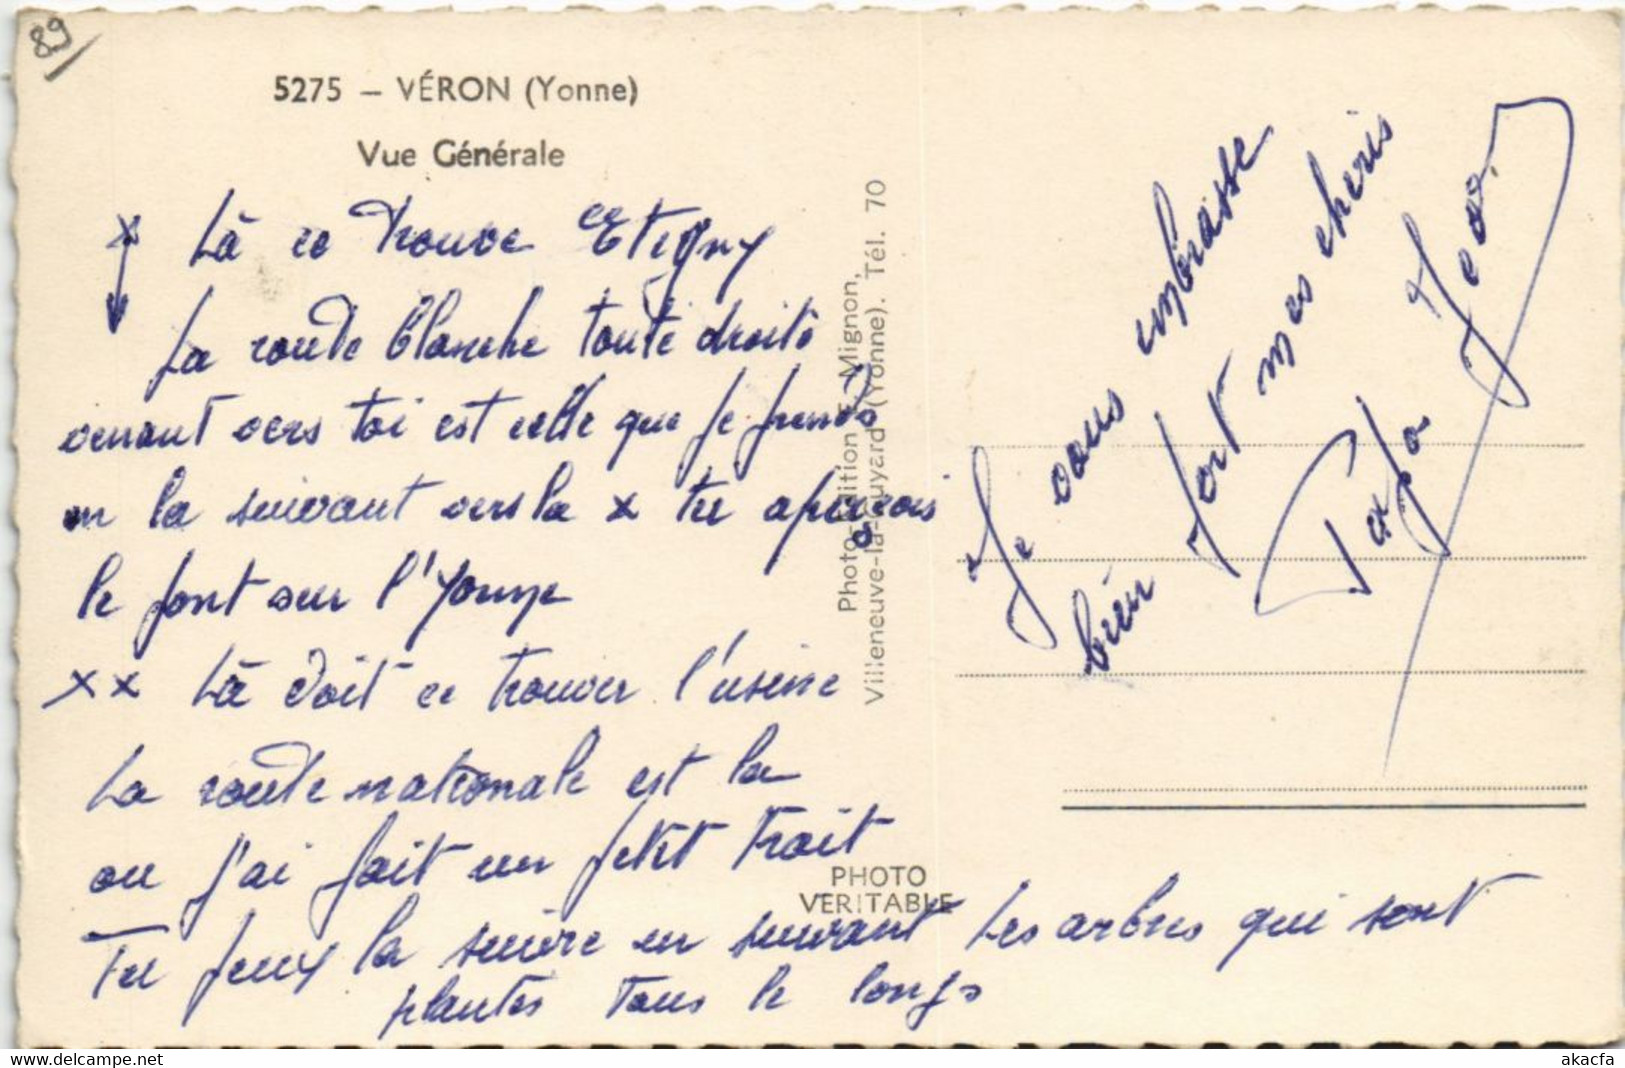 89
5275 – VÉRON (Yonne)
Vue Générale
x Là ce trouve Etigny
La route blanche toute droite
venant vers toi est celle que je prends
en la suivant vers la x tu aperçois
le pont sur l'Yonne
xx Là doit ce trouver l'usine
La route nationale est la
ou j'ai fait un petit trait
Tu peux la suivre en suivant les arbres qui sont
plantés tous le longs
Photo-Edition E. Mignon,
Villeneuve-la-Guyard (Yonne). Tél. 70
PHOTO
VERITABLE
Je vous embrasse
bien fort mes chéris
Papa Geo.
akacfa